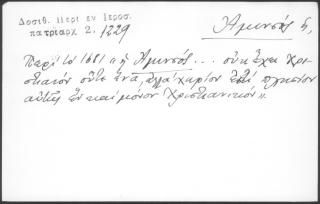 Δοσιθ. Περί εν Ιεροσ.
πατριαρχ 2. 1229
Ἀμινσός 5,
Περὶ τὸ 1681 "ἡ Ἀμινσός... οὐκ ἔχει χρι-
στιανὸν οὔτε ἕνα, ἀλλὰ χωρίον ἐστὶ πλησίον
αὐτῆς ἓν καὶ μόνον Χριστιανικόν".